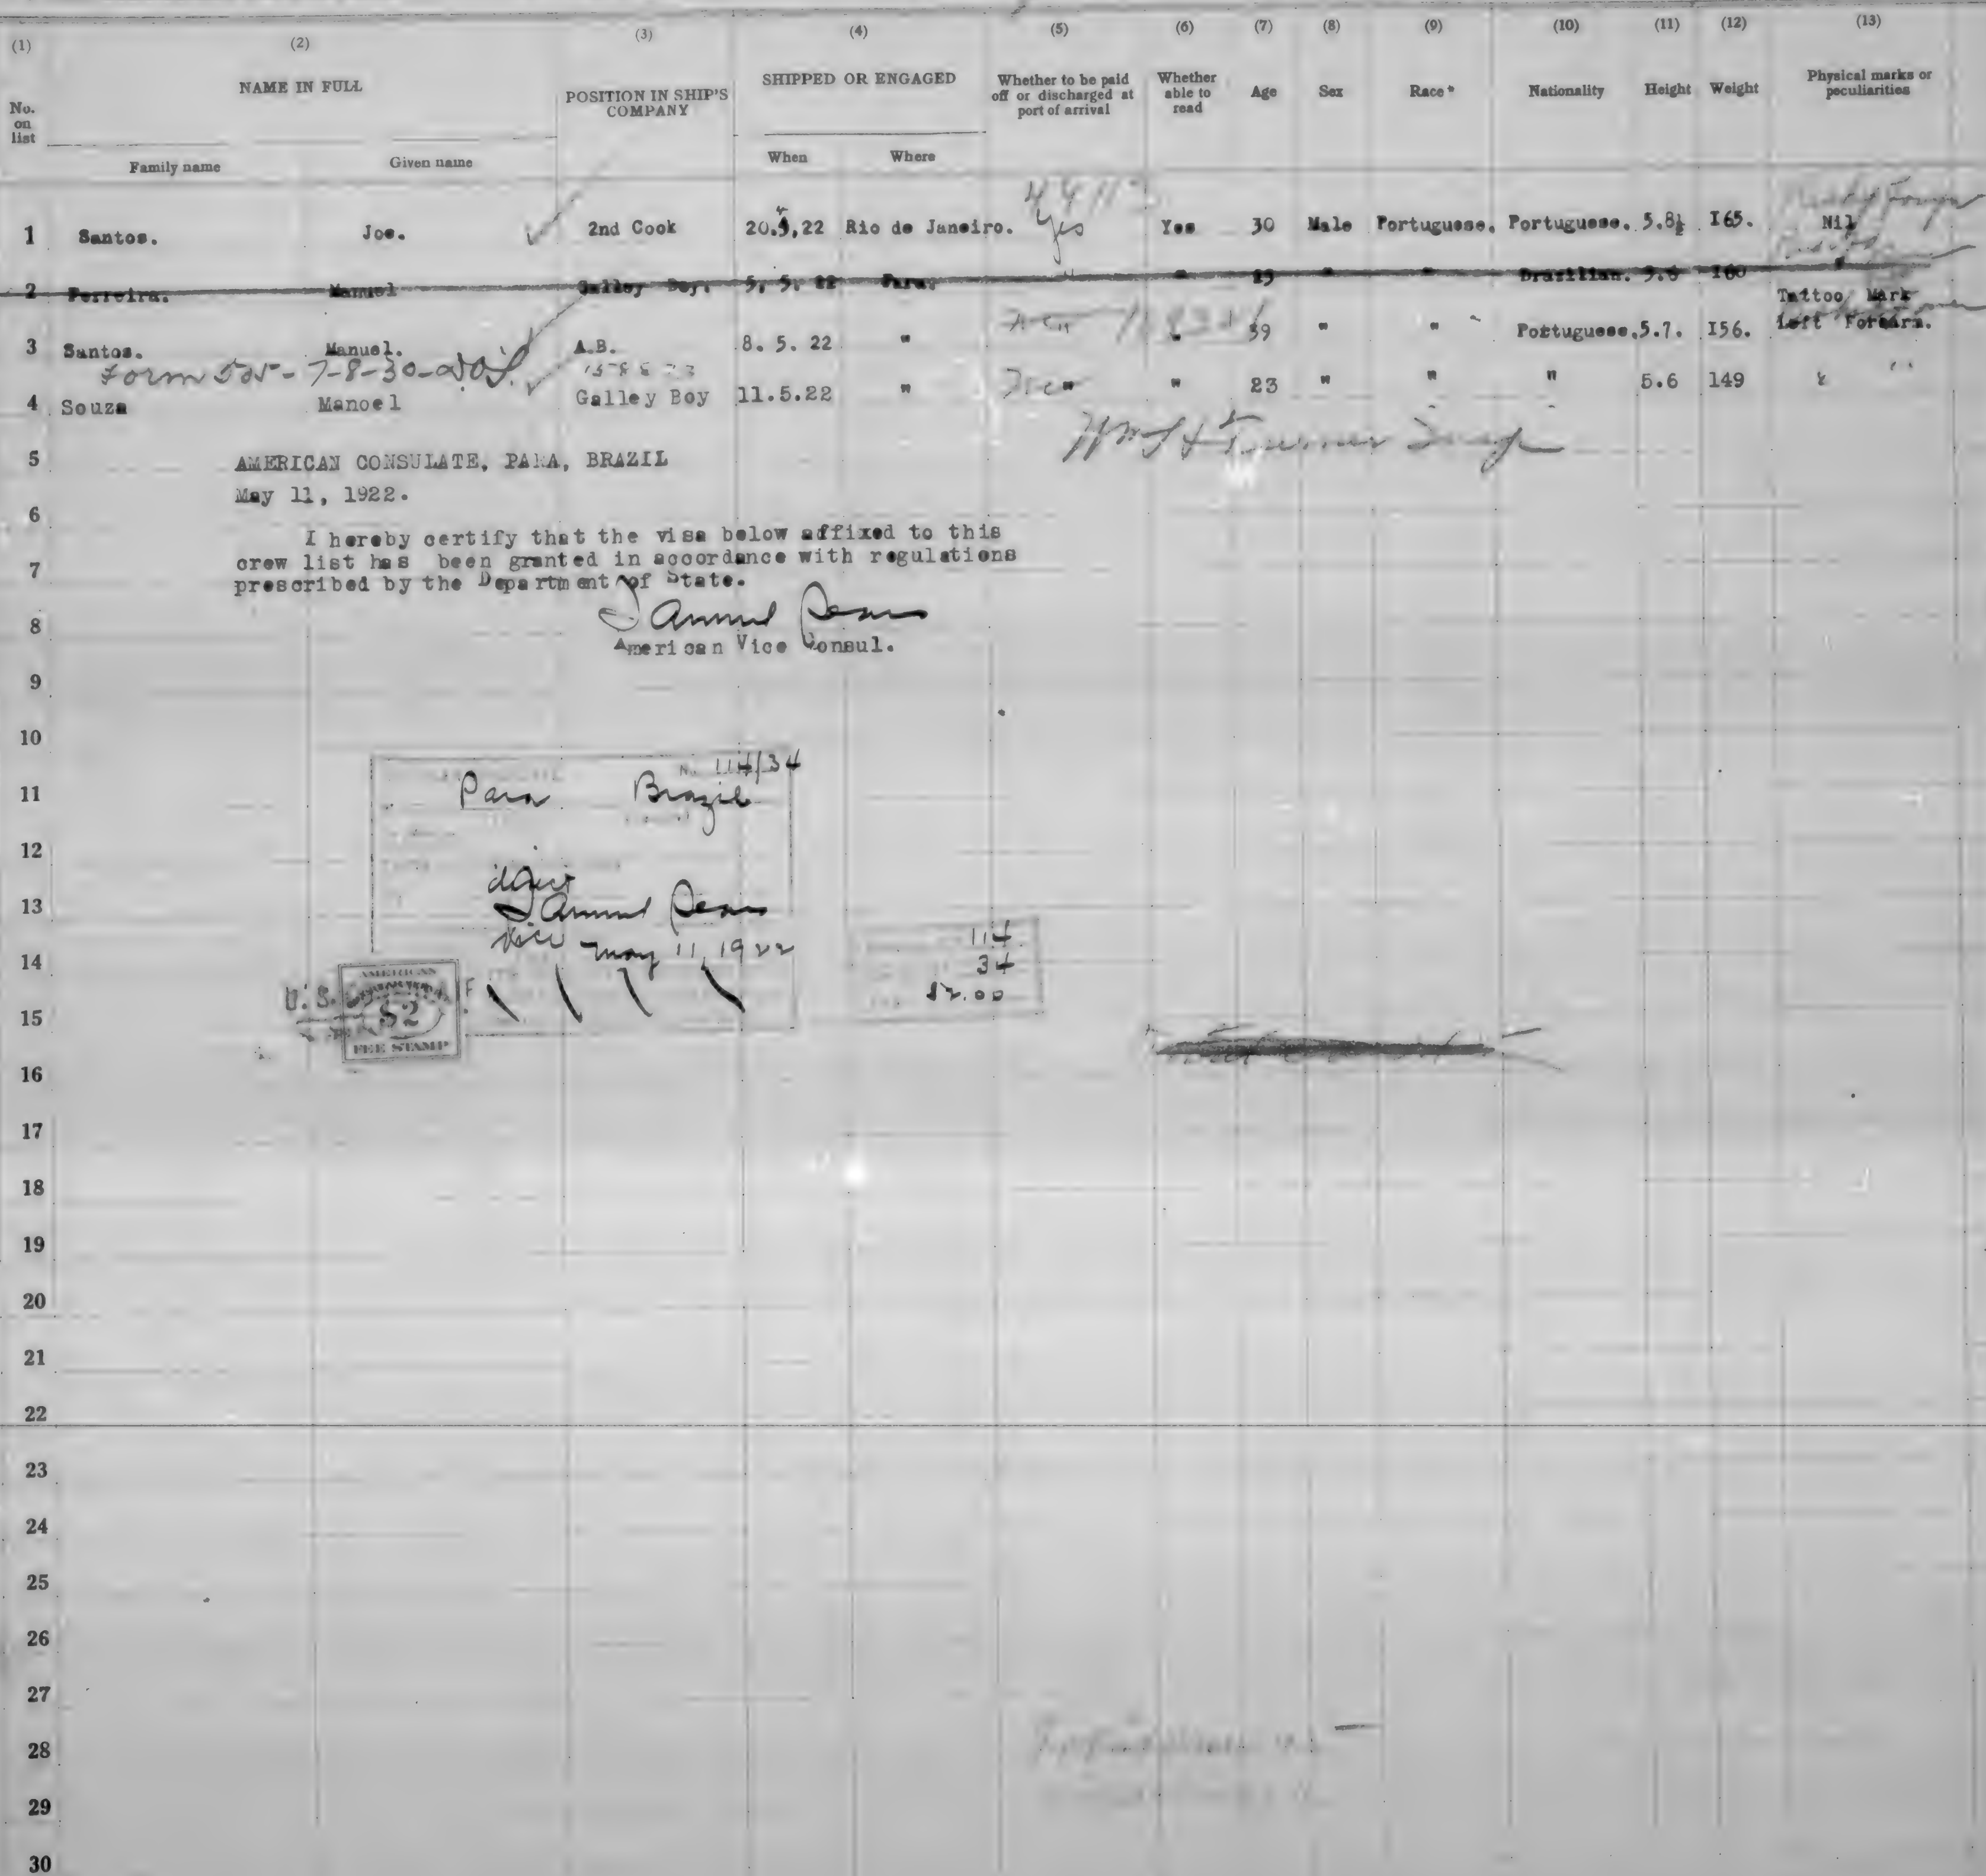 (1) (2) (3) (4) (5) (6) (7) (8) (9) (10) (11) (12) (13)
No. on list NAME IN FULL POSITION IN SHIP'S COMPANY SHIPPED OR ENGAGED Whether to be paid off or discharged at port of arrival Whether able to read Age Sex Race* Nationality Height Weight Physical marks or peculiarities
Family name Given name When Where
1 Santos. Joe. 2nd Cook 20.4.22 Rio de Janeiro. Yes Yes 30 Male Portuguese. Portuguese. 5.8½ I65. Nil
2 Ferreira. Manuel Galley Boy. 5. 5. 22 Para. " " " " Brazilian. I60 "
3 Santos. Manuel. A.B. 8. 5. 22 " " 39 " " Portuguese. 5.7. I56. Tattoo Mark Left Forearm.
Form 505-7-8-30-
4 Souza Manoel Galley Boy 11.5.22 " " " 23 " " " 5.6 149
5 AMERICAN CONSULATE, PARA, BRAZIL
May 11, 1922.
6
I hereby certify that the visa below affixed to this
crew list has been granted in accordance with regulations
7
prescribed by the Department of State.
8
American Vice Consul.
9
10
No. 114/34
11 Para Brazil
12
13
Vice May 11, 1922
14
114
34
$2.00
AMERICAN
$2
FEE STAMP
15
16
17
18
19
20
21
22
23
24
25
26
27
28
29
30